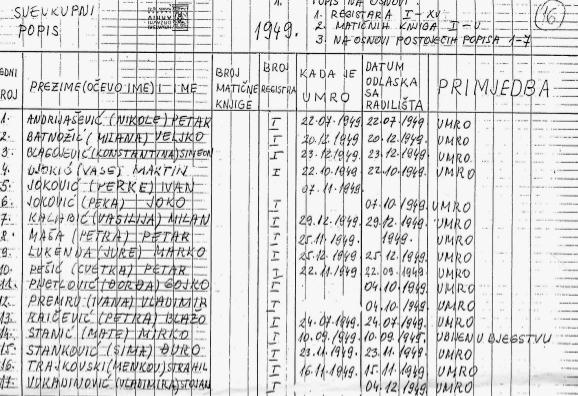 SVEUKUPNI
POPIS
1949.
1. POPIS NA OSNOVI:
1. REGISTARA I-XV.
2. MATIČNIH KNJIGA I-V
3. NA OSNOVI POSTOJEĆIH POPISA 1-7
16
REDNI BROJ PREZIME (OČEVO IME) I IME BROJ MATIČNE KNJIGE BROJ REGISTRA KADA JE UMRO DATUM ODLASKA SA RADILIŠTA PRIMJEDBA
1. ANDRIJAŠEVIĆ (NIKOLE) PETAR I 22.07.1949. 22.07.1949. UMRO
2. BATNOŽIĆ (MILANA) VELJKO I 20.12.1949. 20.12.1949. UMRO
3. BLAGOJEVIĆ (KONSTANTINA) SIMEON I 23.12.1949. 23.12.1949. UMRO
4. UJOKIĆ (VASE) MARTIN I 22.10.1949. 22.10.1949. UMRO
5. JOKOVIĆ (PERKE) IVAN 07.11.1949.
6. JOKOVIĆ (PEKA) JOKO I 07.10.1949. UMRO
7. (VASILIJA) MILAN I 29.12.1949. 29.12.1949. UMRO
8. MAŠA (PETRA) PETAR I 25.11.1949. 1949. UMRO
9. LUKENDA (JURE) MARKO I 25.12.1949. 25.12.1949. UMRO
10. PEŠIĆ (CVETKA) PETAR I 22.11.1949. 22.09.1949. UMRO
11. (ĐORĐA) GOJKO I 04.10.1949. UMRO
12. PREMRU (IVANA) VLADIMIR I 04.10.1949. UMRO
13. RAIČEVIĆ (PETRA) BLAŽO I 24.07.1949. 24.07.1949. UMRO
14. STANIĆ (MATE) MIRKO I 10.09.1949. 10.09.1949. UBIJEN U BJEGSTVU
15. STANKOVIĆ (SIMA) ĐURO I 23.11.1949. 23.11.1949. UMRO
16. TRAJKOVSKI (MENKOV) STRAHIL I 16.11.1949. 15.11.1949. UMRO
17. VUKADINOVIĆ (VLADIMIRA) STOJAN I 04.12.1949. UMRO